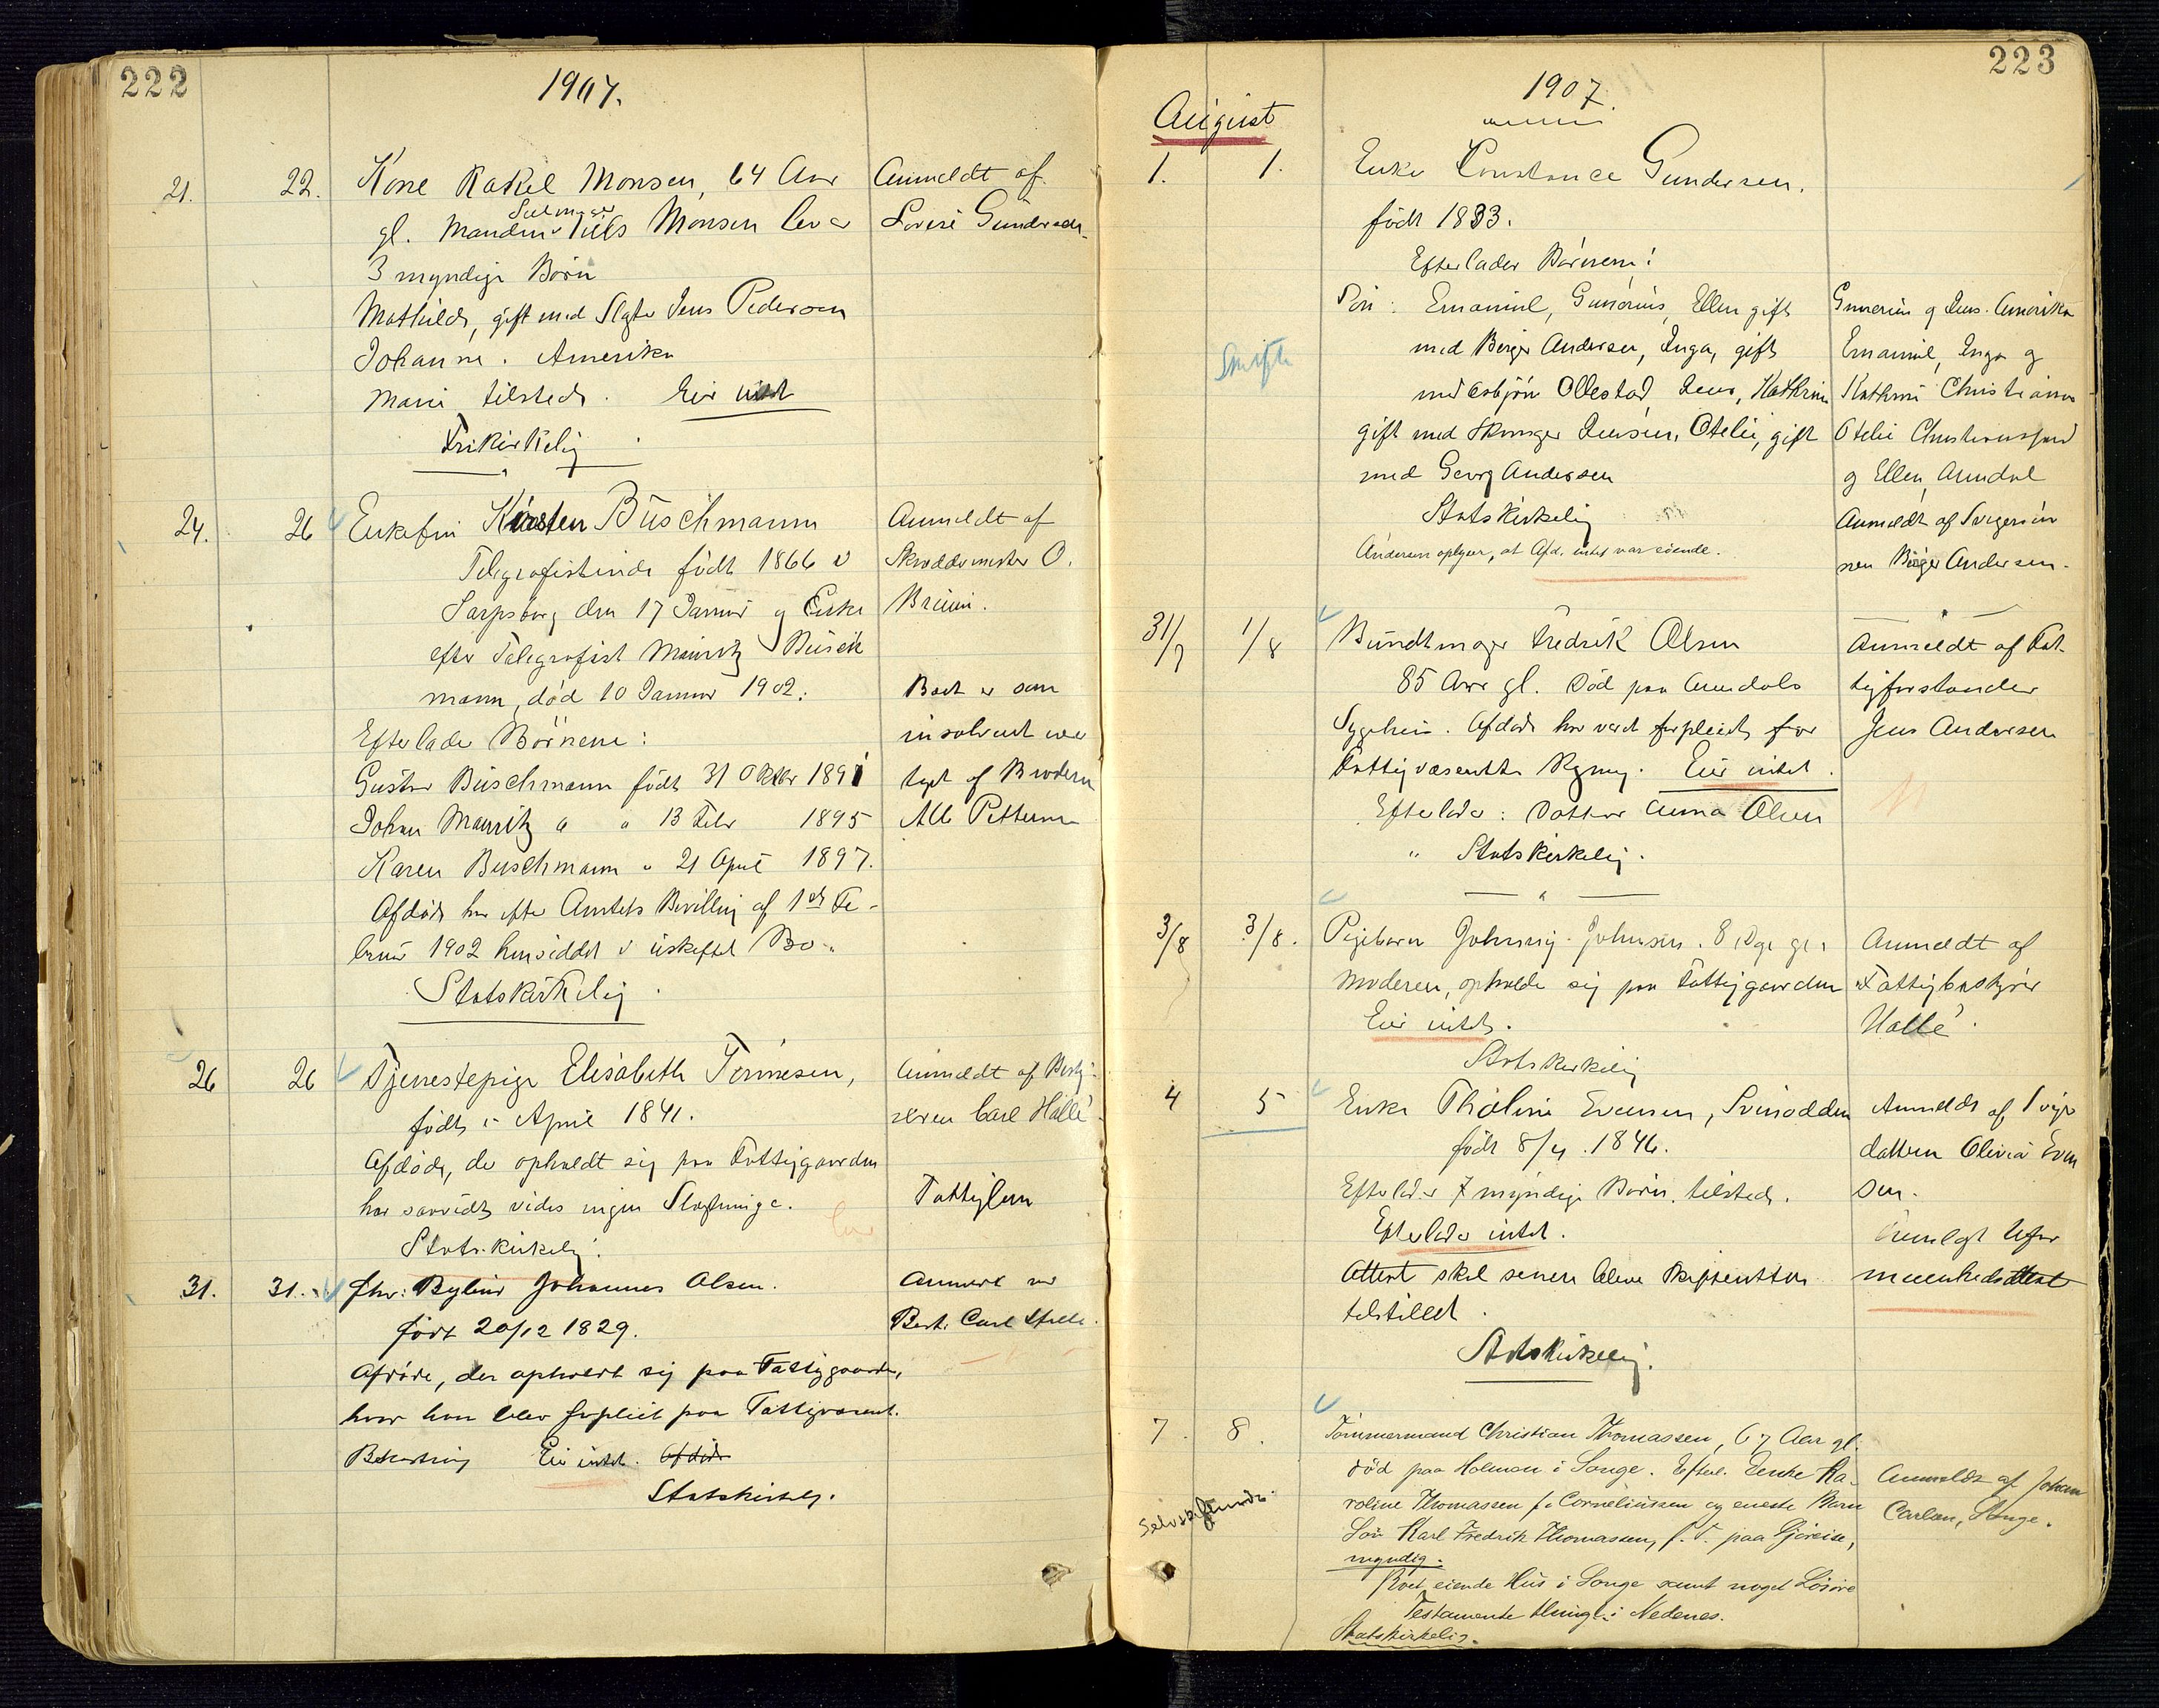 222
1907.
21. 22. Kone Rakel Monsen, 64 Aar
gl. Manden Nils Monsen lever
3 myndige Børn
Mathilde, gift med Slagter Jens Pedersen
Johanne. Amerika
Marie tilstede. Eier intet
Frikirkelig
Anmeldt af
Lovise Gundersen
24. 26 Enkefru Kirsten Buschmann
Telegrafistinde født 1866 i
Sarpsborg den 17 Januar og Enke
efter Telegrafist Mauritz Busch
mann, død 10 Januar 1902.
Efterlader Børnene:
Gustav Buschmann født 31 Oktbr 1891
Johan Mauritz " " 13 Febr 1895
Karen Buschmann " 21 April 1897.
Afdøde har efter Amtets Bevilling af 1ste Fe-
bruar 1902 hensiddet i uskiftet Bo.
Statskirkelig
Anmeldt af
Skræddermester O.
Bruun.
Boet er som
insolvent
af Broderen
26 26 Tjenestepige Elisabeth Tønnesen,
født i April 1841.
Afdøde, der opholdt sig paa Fattiggaarden
har saavidt vides ingen Slægtninge.
Statskirkelig.
Anmeldt af Besty-
reren Carl Hallé
Fattiglem
31. 31. fhv: Bybud Johannes Olsen.
født 20/12 1829.
Afdøde, der opholdt sig paa Fattiggaarden,
hvor han blev forpleiet paa Fattigvæsenets
Bekostning Eier intet. Afdøde
Statskirkelig.
Anmeldt ved
Best. Carl Halle.
223
1907.
August
1. 1. Enke Constance Gundersen.
født 1833.
Efterlader Børnene:
Emanuel, Gunerius, Ellen gift
med Berger Andersen, Inga, gift
med Asbjørn Ollestad, Jens, Kathrine
gift med Jensen, Otelie, gift
med Georg Andersen
Statskirkelig
Andersen oplyser, at Afd. intet var eiende.
Skifte
Gunerius og Jens. Amerika
Emanuel, Inga og
Kathrine Christiania
Otelie Christianssand
og Ellen Arendal
Anmeldt af Svigersøn
nen Børge Andersen.
31/7 1/8 Bundtmager Fredrik Olsen
85 Aar gl. Død paa Arendals
Sygehus. Afdøde har været forpleiet for
Fattigvæsenets Regning. Eier intet.
Efterlader: Datter Anna Olsen
" Statskirkelig.
Anmeldt af Fat-
tigforstander
Jens Andersen
3/8 3/8. Pigebarn Johnsen. 8 Dge gl.
Moderen, opholder sig paa Fattiggaarden
Eier intet.
Statskirkelig
Anmeldt af
Fattigbestyrer
Hallé.
4 5 Enke Thaline Evensen, Svinodden
født 8/4. 1846.
Efterlader 7 myndige Børn tilstede.
Efterlader intet.
Attest skal senere blive Skifteretten
tilstillet.
Statskirkelig.
Anmeldt af Svige
datteren Olivia Even
sen.
Fremlagt Ufor
muenhedsattest
7. 8. Tømmermand Christian Thomassen, 67 Aar gl.
død paa Holmen i Songe. Efterl. Enke Ka-
roline Thomassen f. Corneliussen og eneste Barn
Søn Karl Fredrik Thomassen, f. T. paa Sjøreise,
myndig.
Boet eiende Hus i Songe samt noget Løsøre
Testamente thingl. i Nedenes.
Statskirkelig.
Selvskiftende.
Anmeldt af Johan
Carlsen, Songe.